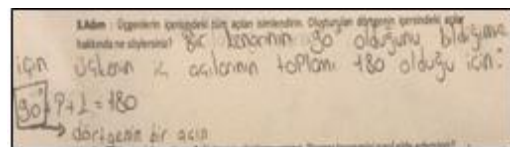 3.Adım : Üçgenlerin içerisindeki tüm açıları isimlendirin. Oluşturulan dörtgenin içerisindeki açılar
hakkında ne söylersiniz? Bir kenarının 90° olduğunu bildiğimiz
için üçkenin iç açılarının toplamı 180 olduğu için:
90°+?+1=180
→ dörtgenin bir açısı